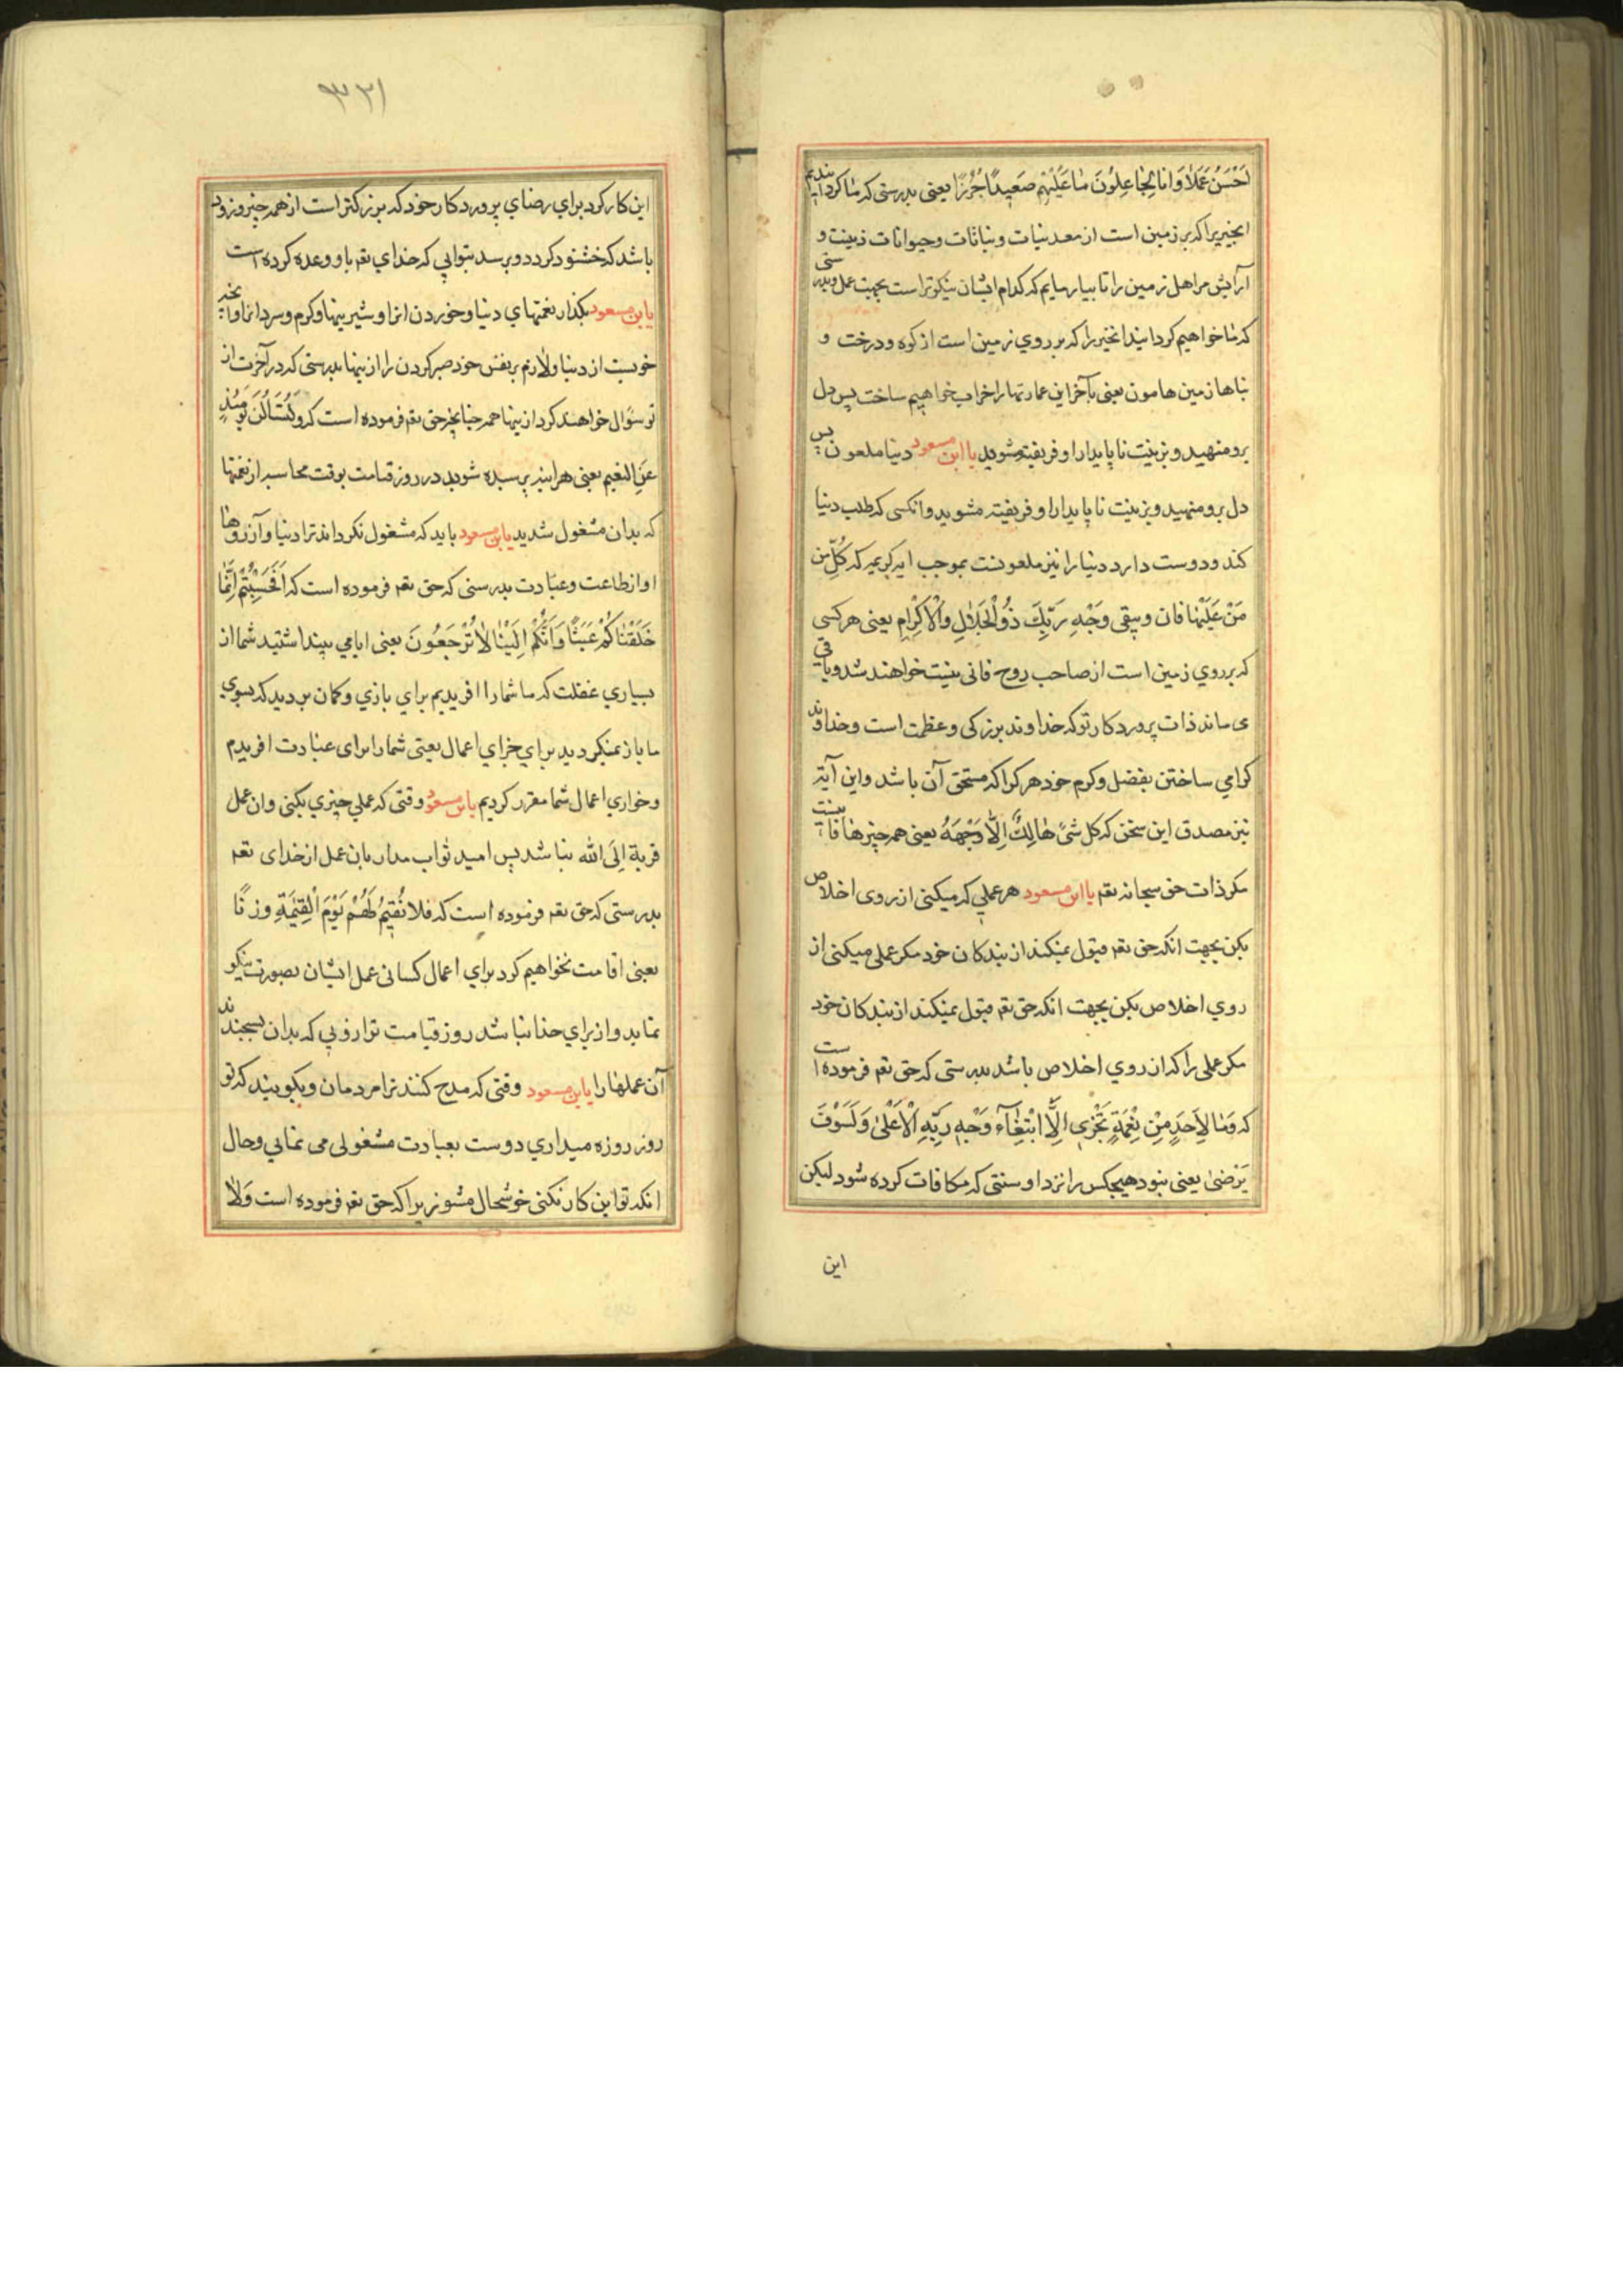 احْسَنُ عَمَلاً وَانا لجاعِلُونَ ما عَلَيْهٰم صَعِيداً جُرُزاً يعنى بدرستى كه ما كردانيديم
انچيزيرا كه بر زمين است از معدنيات و نباتات و حيوانات زينت و
آرايش مر اهل زمين را تا بيازمايم كه كدام ايشان نيكوتر است بجهت عمل و بدرستى
كه ما خواهيم كردانيد انچيز را كه بر روي زمين است از كوه و درخت و
بناها زمين هامون يعنى بآخر اين عمارتها را خراب خواهيم ساخت پس دل
برو منهيد و بزينت ناپايدار او فريفته مشويد يا ابن مسعود دنيا ملعون پس
دل برو منهيد و بزينت ناپايدار او فريفته مشويد و انكسى كه طلب دنيا
كند و دوست دارد دنيا را نيز ملعونست بموجب ايه كريمه كه كُلّ من
مَنْ عَلَيْها فان ويبقى وَجْهِ رَبِّكَ ذُو الْجَلالِ وَالْاكْرِام يعنى هر كسى
كه بر روي زمين است از صاحب روح فانى نيست خواهند شد و باقى
مى ماند ذات پروردكار تو كه خداوند بزركى و عظمت است و خداوند
كرامي ساختن بفضل و كرم خود هر كرا كه مستحق آن باشد و اين آية
نيز مصدق اين سخن كه كل شئ هالِكٌ اِلّا وَجْهَهُ يعنى همه چيزها فانيست
مكر ذات حق سبحانه تعم يا ابن مسعود هر عملي كه ميكنى از روى اخلاص
بكن بجهت انكه حق تعم قبول نميكند از بندكان خود مكر عملى ميكنى از
روي اخلاص بكن بجهت انكه حق تعم قبول نميكند از بندكان خود
مكر عملى را كه از روي اخلاص باشد بدرستى كه حق تعم فرموده است
كه وَما لِاَحَدٍ مِنْ نِعْمَةٍ تَجْزى اِلَّا ابْتِغٰآءَ وَجْهِ رَبِّهِ الْاَعْلٰى وَلَسَوْفَ
يَرْضىٰ يعنى نبود هيچكس را نزد او سنتى كه مكافات كرده شود ليكن
اين
٣٣١
اين كار كرد براي رضاي پروردكار خود كه بزركتر است از همه چيز و زود
باشد كه خشنود كردد و برسد بثوابي كه خداي تعم باو وعده كرده است
يا بن مسعود بكذار نعمتهاي دنيا و خوردن انرا و شيرينها و كرم و سرد انرا و
خويست از دنيا و لازم بر نفس خود صبر كردن را از نيها بدرستى كه در آخرت از
تو سؤال خواهند كرد از نيها همه چنانچه حق تعم فرموده است كه وَلَتُسْئَلُنَّ يَوْمَئِذٍ
عَنِ النعيم يعنى هراينه پرسيده شويد در روز قيامت بوقت محاسبه از نعمتها
كه بدان مشغول شديد يا بن مسعود بايد كه مشغول نكرداند ترا دنيا و آرزوها
او از طاعت و عبادت بدرستى كه حق تعم فرموده است كه اَفَحَسِبْتُمْ اَنَّمٰا
خَلَقْنٰاكُمْ عَبَثًا وَاَنَّكُمْ اِلَيْنٰا لاٰ تُرْجَعُونَ يعنى ايا مي پنداشتيد شما از
بسياري غفلت كه ما شما را افريديم براي بازي و كمان برديد كه بسوي
ما باز نميكرديد براي جزاي اعمال يعنى شما را براى عبادت افريدم
و خواري اعمال شما مقرر كرديم يا بن مسعود وقتى كه عملي چيزي بكنى و ان عمل
قربة اِلَى الله نباشد پس اميد ثواب مدار بان عمل از خداى تعم
بدرستى كه حق تعم فرموده است كه فلا نُقيمُ لَهُمْ يَوْمَ الْقِيٰمَةِ وزنًا
يعنى اقامت نخواهيم كرد براي اعمال كسانى عمل ايشان بصورت نيكو
نمايد و از براي خدا نباشد روز قيامت ترازويي كه بدان بسنجند
آن عملها را يا بن مسعود وقتى كه مدح كنند ترا مردمان و بكويند كه تو
روز روزه ميداري دوست بعبادت مشغولى مى نمايي و حال
انكه تو اين كار نكنى خوشحال مشو زيرا كه حق تعم فرموده است وَلاٰ